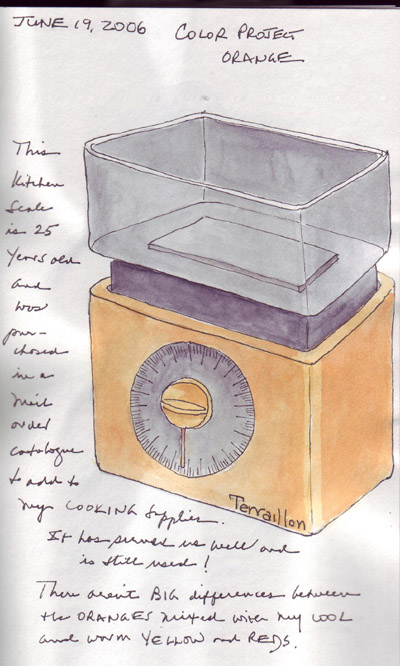 JUNE 19, 2006
COLOR PROJECT
ORANGE
This
kitchen
scale
is 25
years old
and
was
pur-
chased
in a
mail
order
catalogue
to add to
my COOKING supplies.
It has served us well and
is still used!
Terraillon
There aren't BIG differences between
the ORANGES mixed with my COOL
and warm YELLOW and REDS.